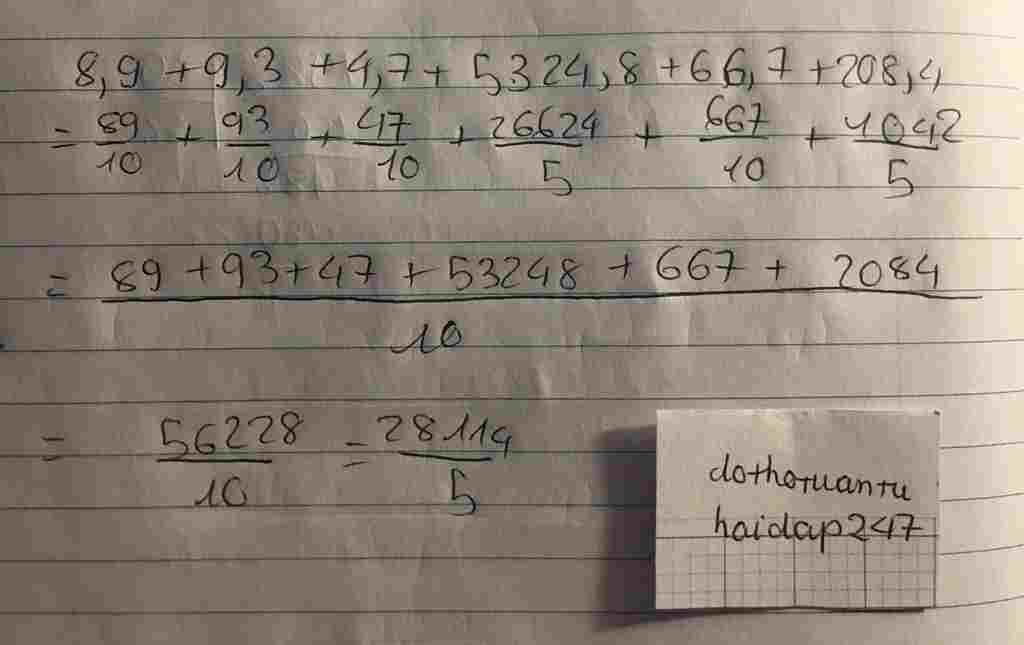 8,9 + 9,3 + 4,7 + 5324,8 + 66,7 + 208,4
= 89/10 + 93/10 + 47/10 + 26624/5 + 667/10 + 1042/5
= (89 + 93 + 47 + 53248 + 667 + 2084)/10
= 56228/10 = 28114/5
dothotuantu
hoidap247